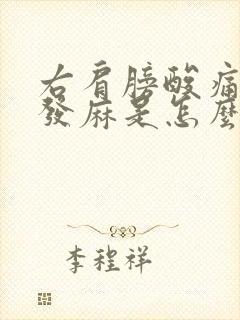 右肩膀酸痛
發麻是怎麼
李程祥